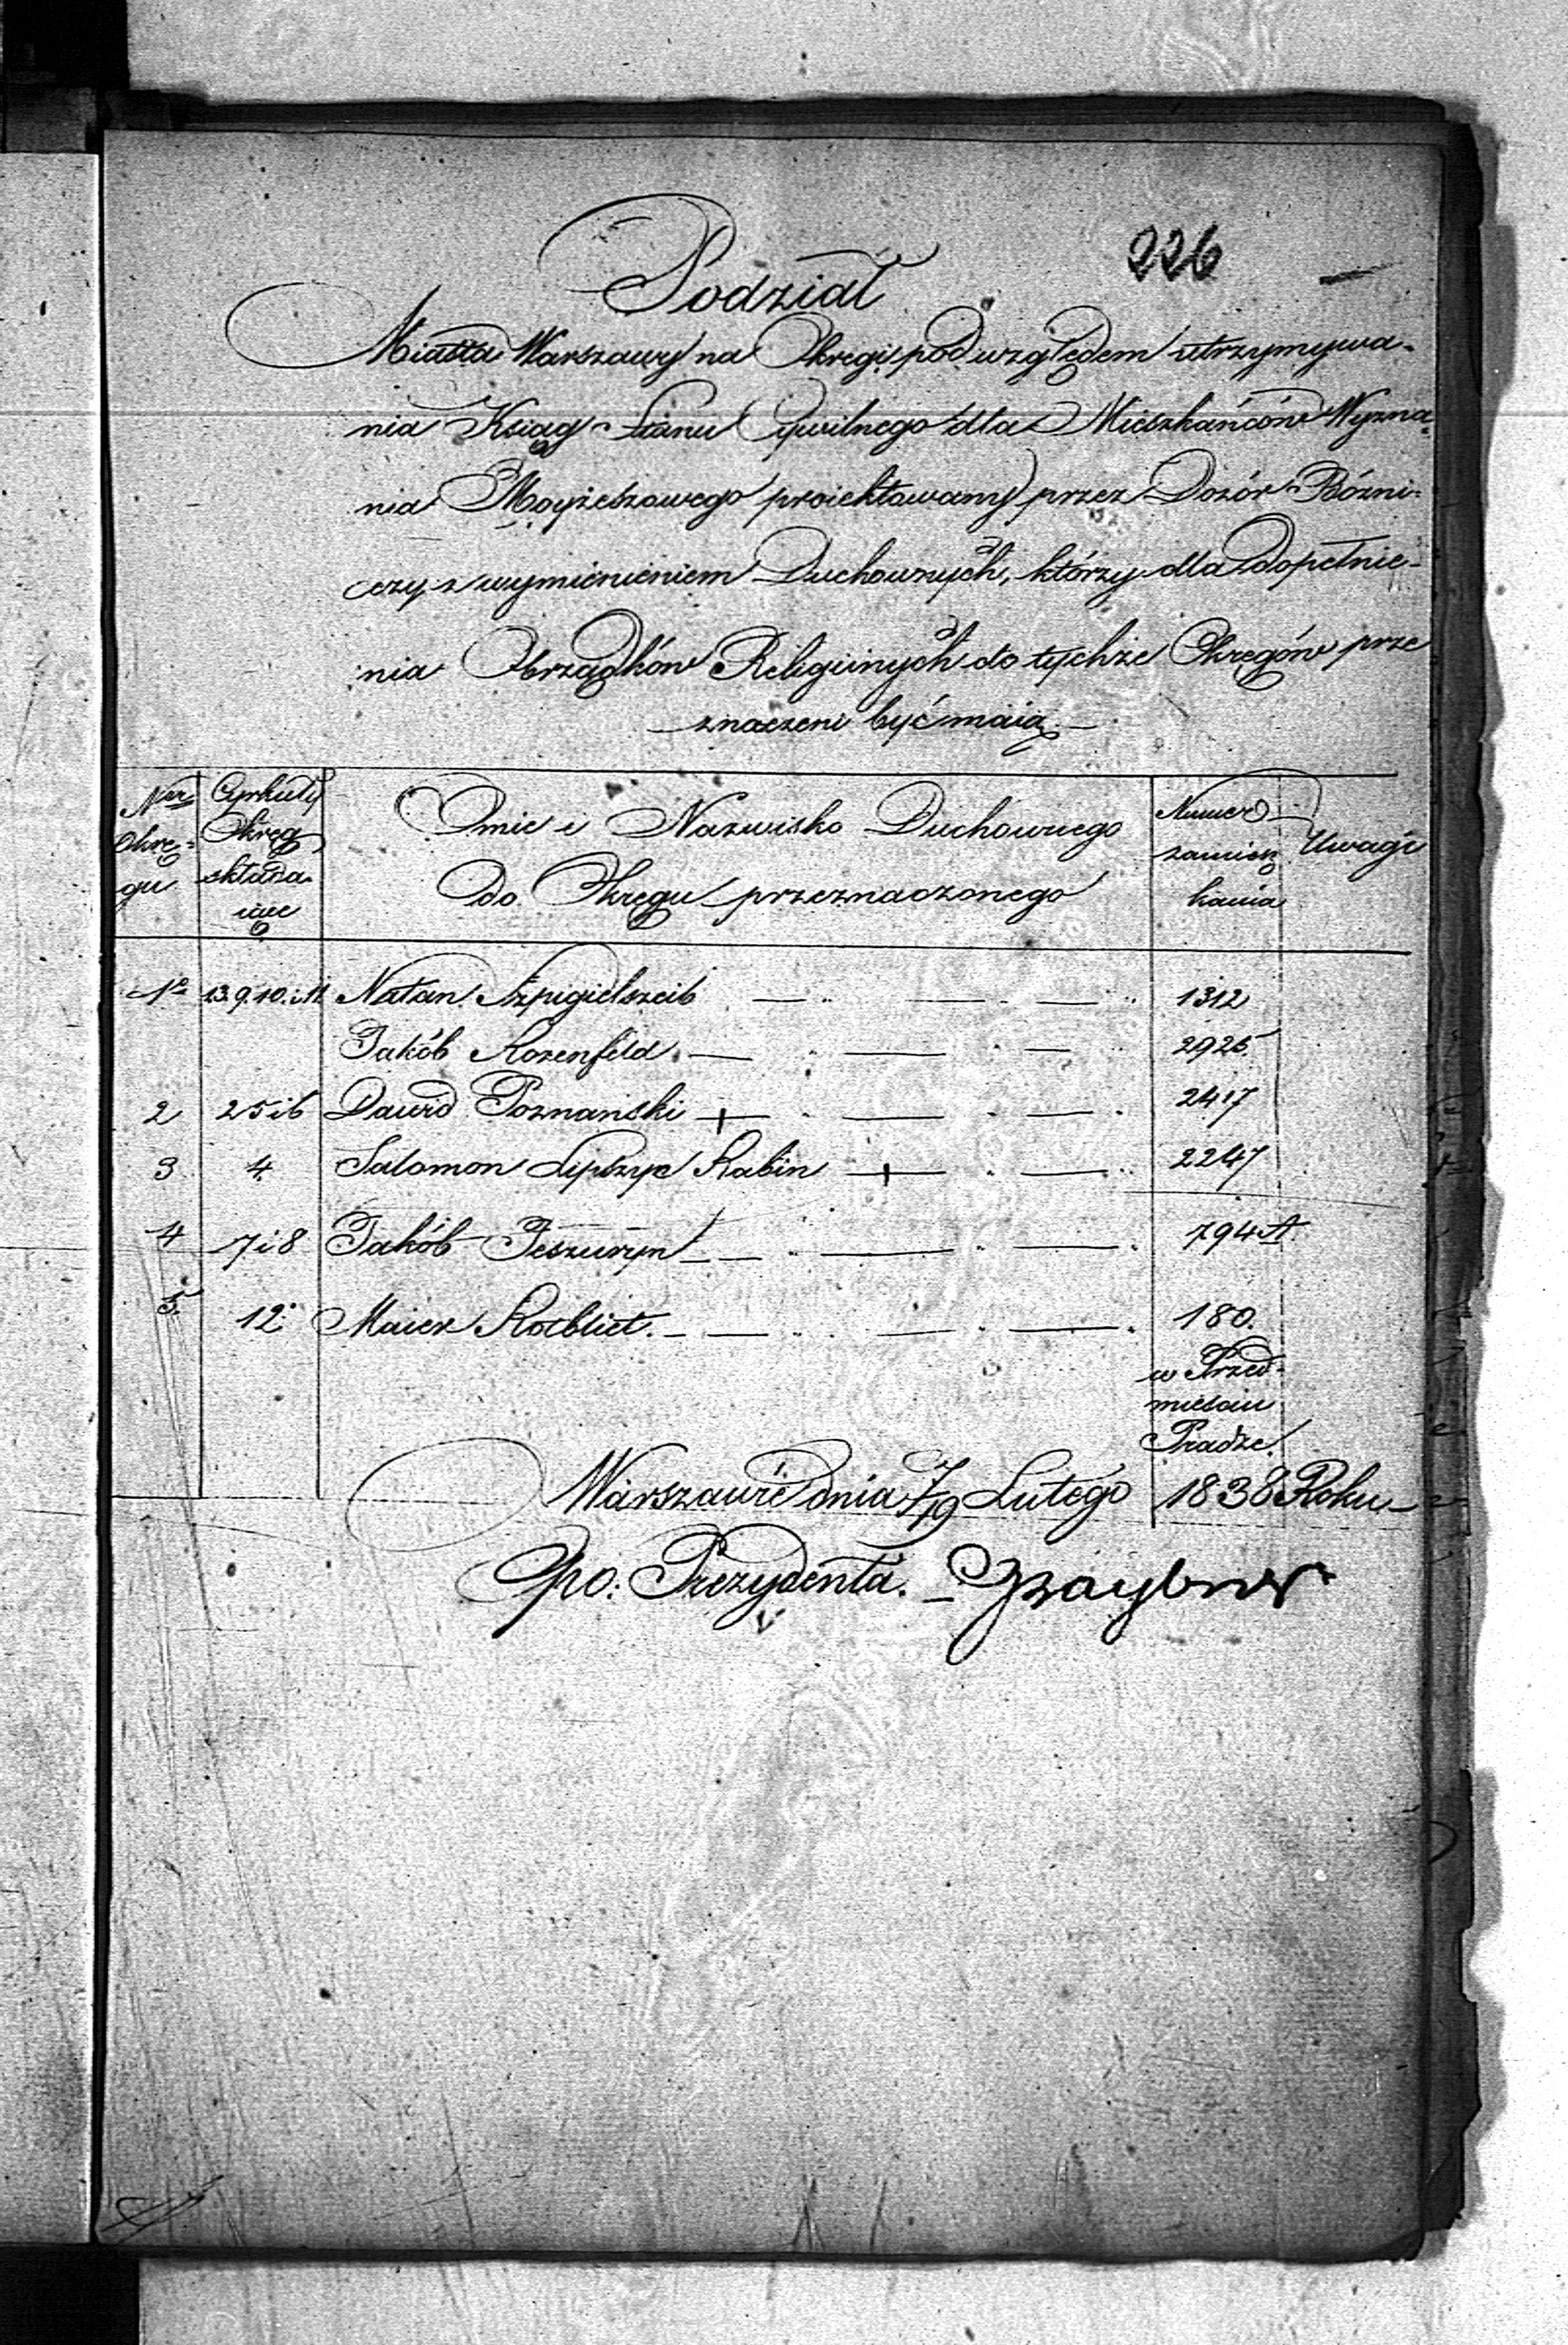 226
Podział
Miasta Warszawy na Okręgi pod względem utrzymywa-
nia Ksiąg Stanu Cywilnego dla Mieszkańców Wyzna-
nia Moyżeszowego proiektowany przez Dozór Bóżni-
czy z wymienieniem Duchownych, którzy dla dopełnie-
nia Obrządków Religiinych do tychże Okręgów prze
znaczeni być maią.
Ner Okrę- gu | Cyrkuły Okręg składa- iące | Imie i Nazwisko Duchownego do Okręgu przeznaczonego | Numer zamiesz kania | Uwagi
1o 1.3.9.10. i 11. Natan Szpigielszeib 1312
Jakób Rozenfeld 2925.
2 2 5 i 6 Dawid Poznański 2417
3 4. Salomon Lipszyc Rabin 2247
4 7 i 8 Jakób Jeszuryn 794 A.
5. 12. Maier Rotblitt. 180.
w Przed-
mieściu
Pradze.
w Warszawie dnia 7/19 Lutego 1838 Roku
po: Prezydenta.